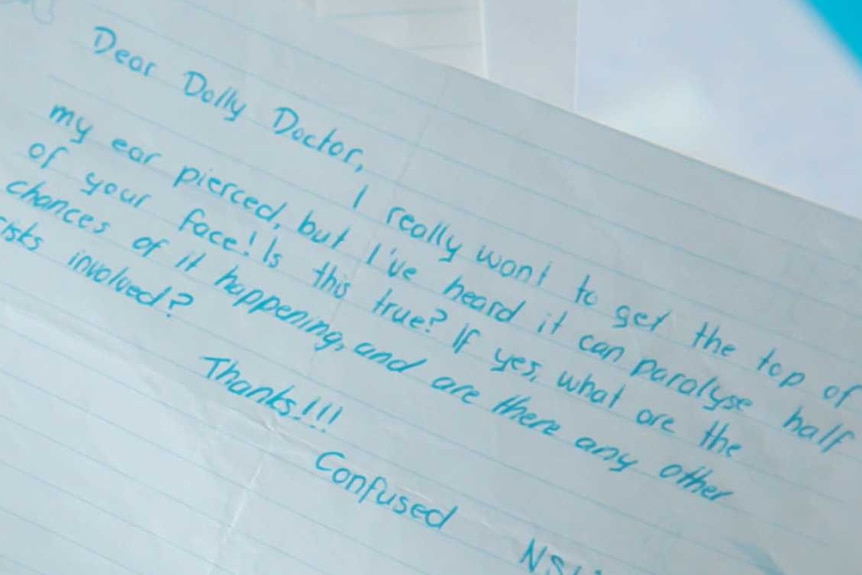 Dear Dolly Doctor,
I really want to get the top of
my ear pierced, but I've heard it can paralyse half
of your face! Is this true? If yes, what are the
chances of it happening, and are there any other
risks involved?
Thanks!!!
Confused